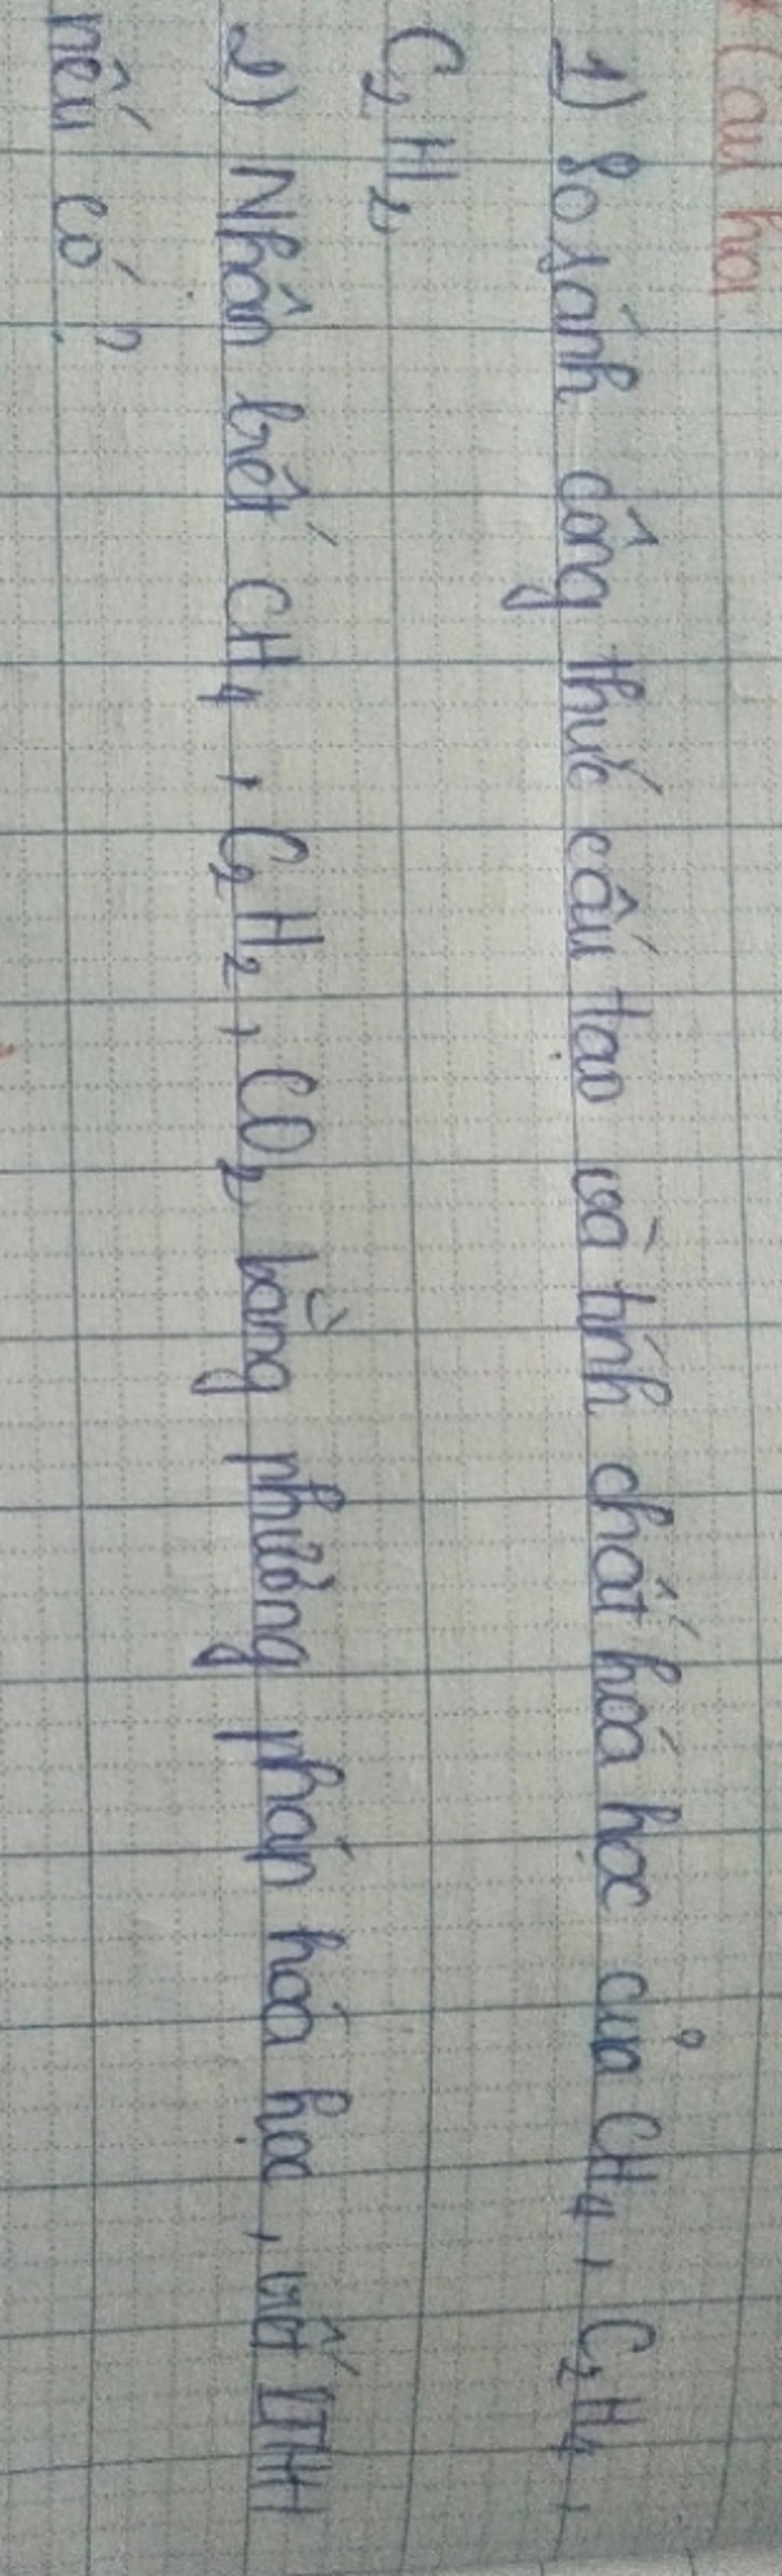 * Câu hỏi
1) So sánh công thức cấu tạo và tính chất hoá học của CH4, C2H4,
C2H2
2) Nhận biết CH4, C2H2, CO2 bằng phương pháp hóa học, viết PTHH
nếu có?